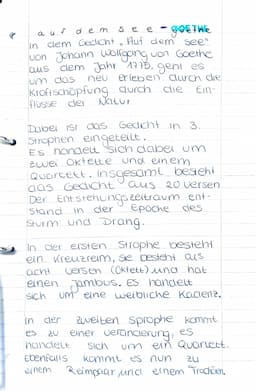 auf dem see - GOETHE
In dem Gedicht „Auf dem See"
von Johann Wolfgang von Goethe
aus dem Jahr 1775, geht es
um das neu Erleben durch die
Kraftschöpfung durch die Ein-
flüsse der Natur
Dabei ist das Gedicht in 3.
Strophen eingeteilt.
Es handelt sich dabei um
zwei Oktette und einem
Quartett. Insgesamt besteht
das Gedicht aus 20 Versen
Der Entstehungszeitraum ent-
stand in der Epoche des
Sturm und Drang.
In der ersten Strophe besteht
ein Kreuzreim, sie besteht aus
acht Versen (Oktett) und hat
einen Jambus. Es handelt
sich um eine weibliche Kadenz.
In der zweiten Strophe kommt
es zu einer Veränderung, es
handelt sich um ein Quartett.
Ebenfalls kommt es nun zu
einem Reimpaar und einem Trochäus.